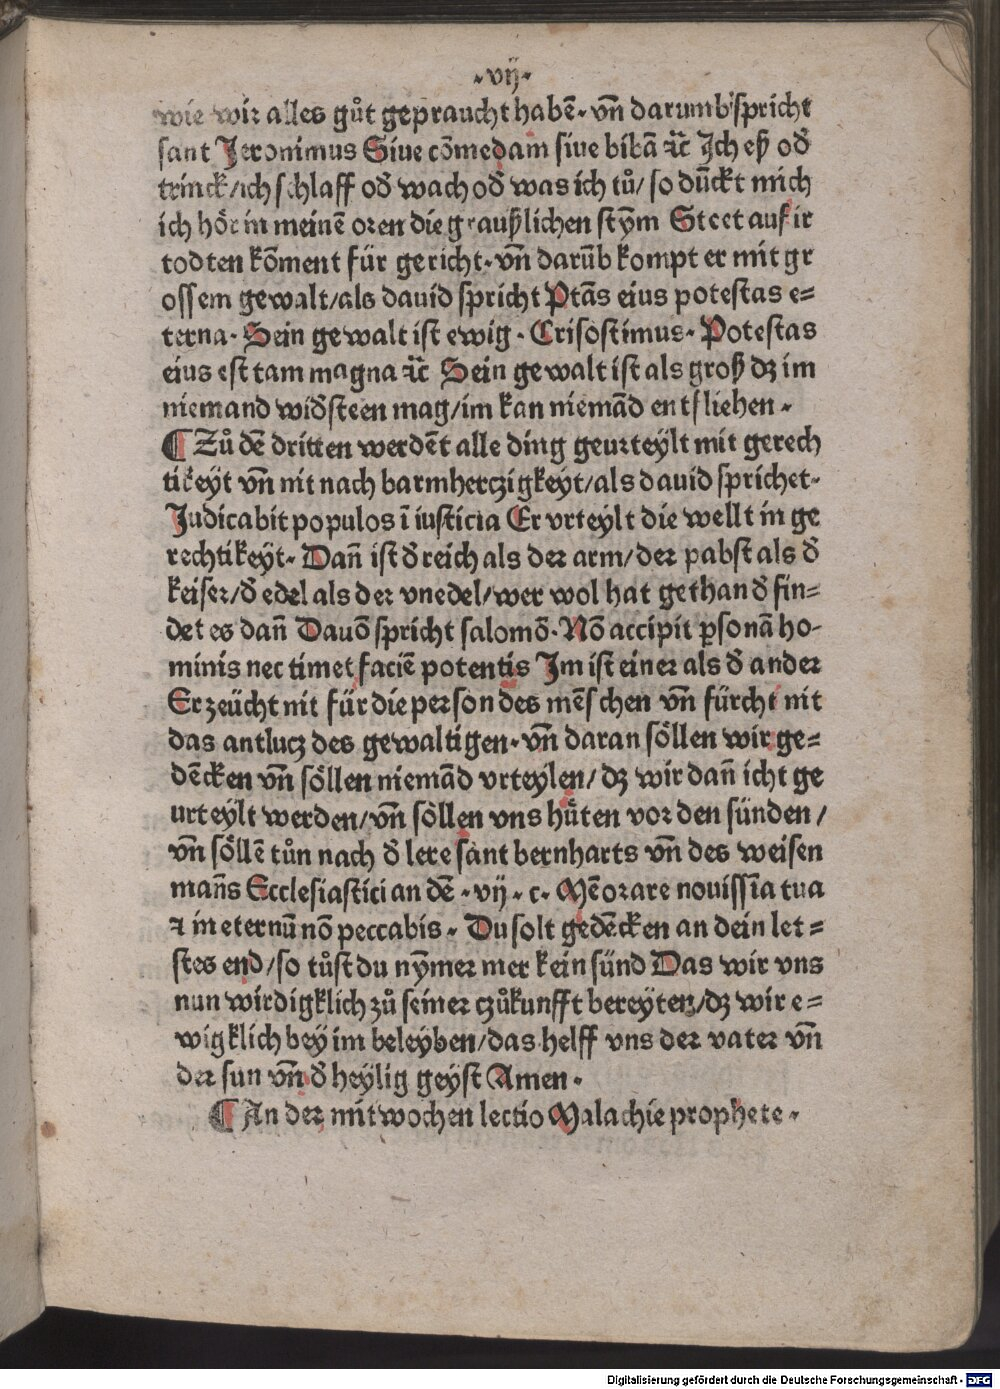 ·vij·
wie wir alles gůt gepraucht habē· vn̄ darumb spricht
sant Jeronimus Siue cōmedam siue bibā ⁊c̄ Ich eß od̕
trinck/ich schlaff od̕ wach od̕ was ich tů/ so dūckt mich
ich hör in meinē oren die graußlichen stȳm Steet auf ir
todten kōment für gericht· vn̄ darūb kompt er mit gr
ossem gewalt/als dauid spricht Ptās eius potestas e⸗
terna· Sein gewalt ist ewig· Crisostimus· Potestas
eius est tam magna ⁊c̄ Sein gewalt ist als groß dꝫ im
niemand wid̕steen mag/im kan niemād entfliehen·
¶ Zů dē dritten werdēt alle ding geurteylt mit gerech
tikeyt vn̄ nit nach barmherczigkeyt/als dauid sprichet·
Judicabit populos ī iusticia Er vrteylt die wellt in ge
rechtikeyt· Dan̄ ist d̕ reich als der arm/der pabst als d̕
keiser/d̕ edel als der vnedel/wer wol hat gethan d̕ fin⸗
det es dan̄ Dauō spricht salomō· Nō accipit ꝑsonā ho⸗
minis nec timet faciē potentis Im ist einer als d̕ ander
Er zeücht nit für die person des mēschen vn̄ fürcht nit
das antlucz des gewaltigen· vn̄ daran söllen wir ge⸗
dēcken vn̄ söllen niemād vrteylen/ dꝫ wir dan̄ icht ge
urteylt werden/vn̄ söllen vns hüten vor den sünden/
vn̄ söllē tůn nach d̕ lere sant bernharts vn̄ des weisen
man̄s Ecclesiastici an dē· vij· c· Mēorare nouissīa tua
⁊ in eternū nō peccabis· Du solt gedēcken an dein let⸗
stes end/so tůst du nȳmer mer kein sünd Das wir vns
nun wirdigklich zů seiner czůkunfft bereyten/dꝫ wir e⸗
wigklich bey im beleyben/das helff vns der vater vn̄
der sun vn̄ d̕ heylig geyst Amen·
¶ An der mitwochen lectio Malachie prophete·
Digitalisierung gefördert durch die Deutsche Forschungsgemeinschaft - DFG